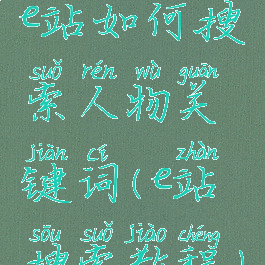 e站如何搜
suǒ rén wù guān
索人物关
jiàn cí zhàn
键词(e站
sōu suǒ jiào chéng
搜索教程)